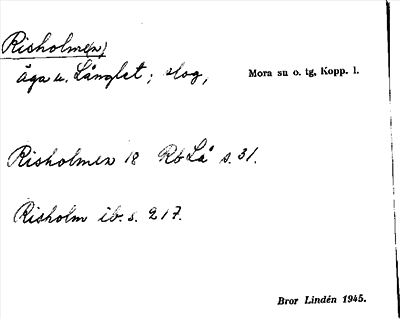 Risholme(n)
äga u. Långlet; skog,
Mora sn o. tg, Kopp. l.
Risholmen 18 Rb Lå s. 31.
Risholm ib. s. 217.
Bror Lindén 1945.